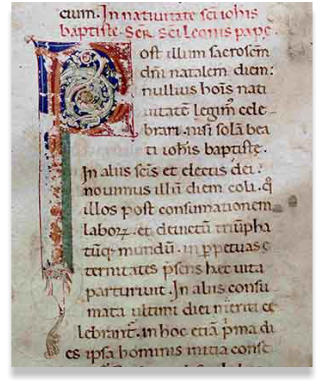 cium. In natiuitate sc̄i ioh̄is
baptiste. Ser. Sc̄i Leonis pape.
Post illum sacrosc̄m
dn̄i natalem diem:
nullius hoīs nati
uitatē legim᷒ cele
brari. nisi solā bea
ti ioh̄is baptiste.
In aliis sc̄is et electis dei:
nouimus illū diem coli. q̄
illos post consumationem
laboꝝ. et deuictū triūpha
tūq; mundū. in ꝑpetuas ę
ternitates p̄sens hęc uita
parturiuit. In aliis consu
mata ultimi diei merita ce
lebrant᷑. in hoc etiā p̄ma di
es ipsa hominis initia conse